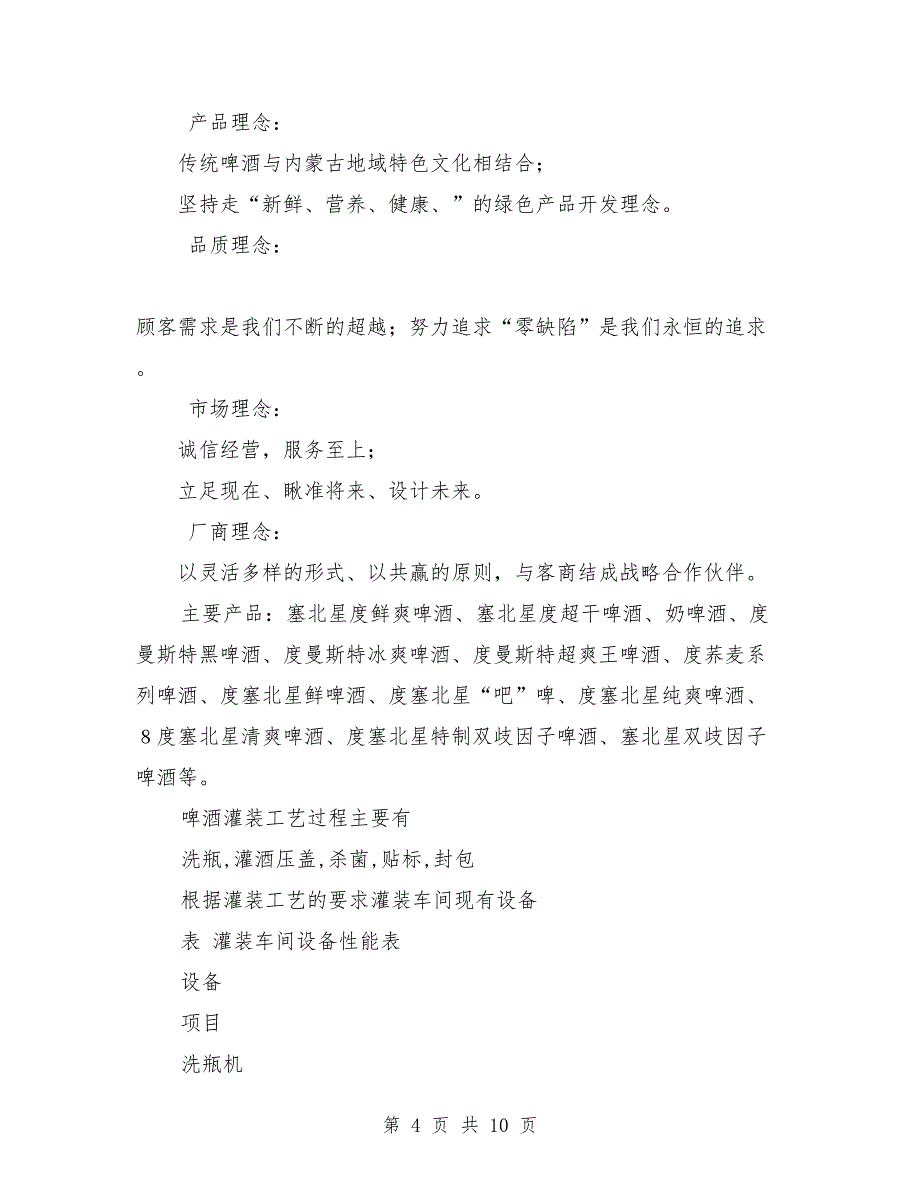 产品理念：
传统啤酒与内蒙古地域特色文化相结合；
坚持走“新鲜、营养、健康、”的绿色产品开发理念。
品质理念：
顾客需求是我们不断的超越；努力追求“零缺陷”是我们永恒的追求
。
市场理念：
诚信经营，服务至上；
立足现在、瞅准将来、设计未来。
厂商理念：
以灵活多样的形式、以共赢的原则，与客商结成战略合作伙伴。
主要产品：塞北星度鲜爽啤酒、塞北星度超干啤酒、奶啤酒、度
曼斯特黑啤酒、度曼斯特冰爽啤酒、度曼斯特超爽王啤酒、度荞麦系
列啤酒、度塞北星鲜啤酒、度塞北星“吧”啤、度塞北星纯爽啤酒、
8度塞北星清爽啤酒、度塞北星特制双歧因子啤酒、塞北星双歧因子
啤酒等。
啤酒灌装工艺过程主要有
洗瓶,灌酒压盖,杀菌,贴标,封包
根据灌装工艺的要求灌装车间现有设备
表 灌装车间设备性能表
设备
项目
洗瓶机
第 4 页 共 10 页